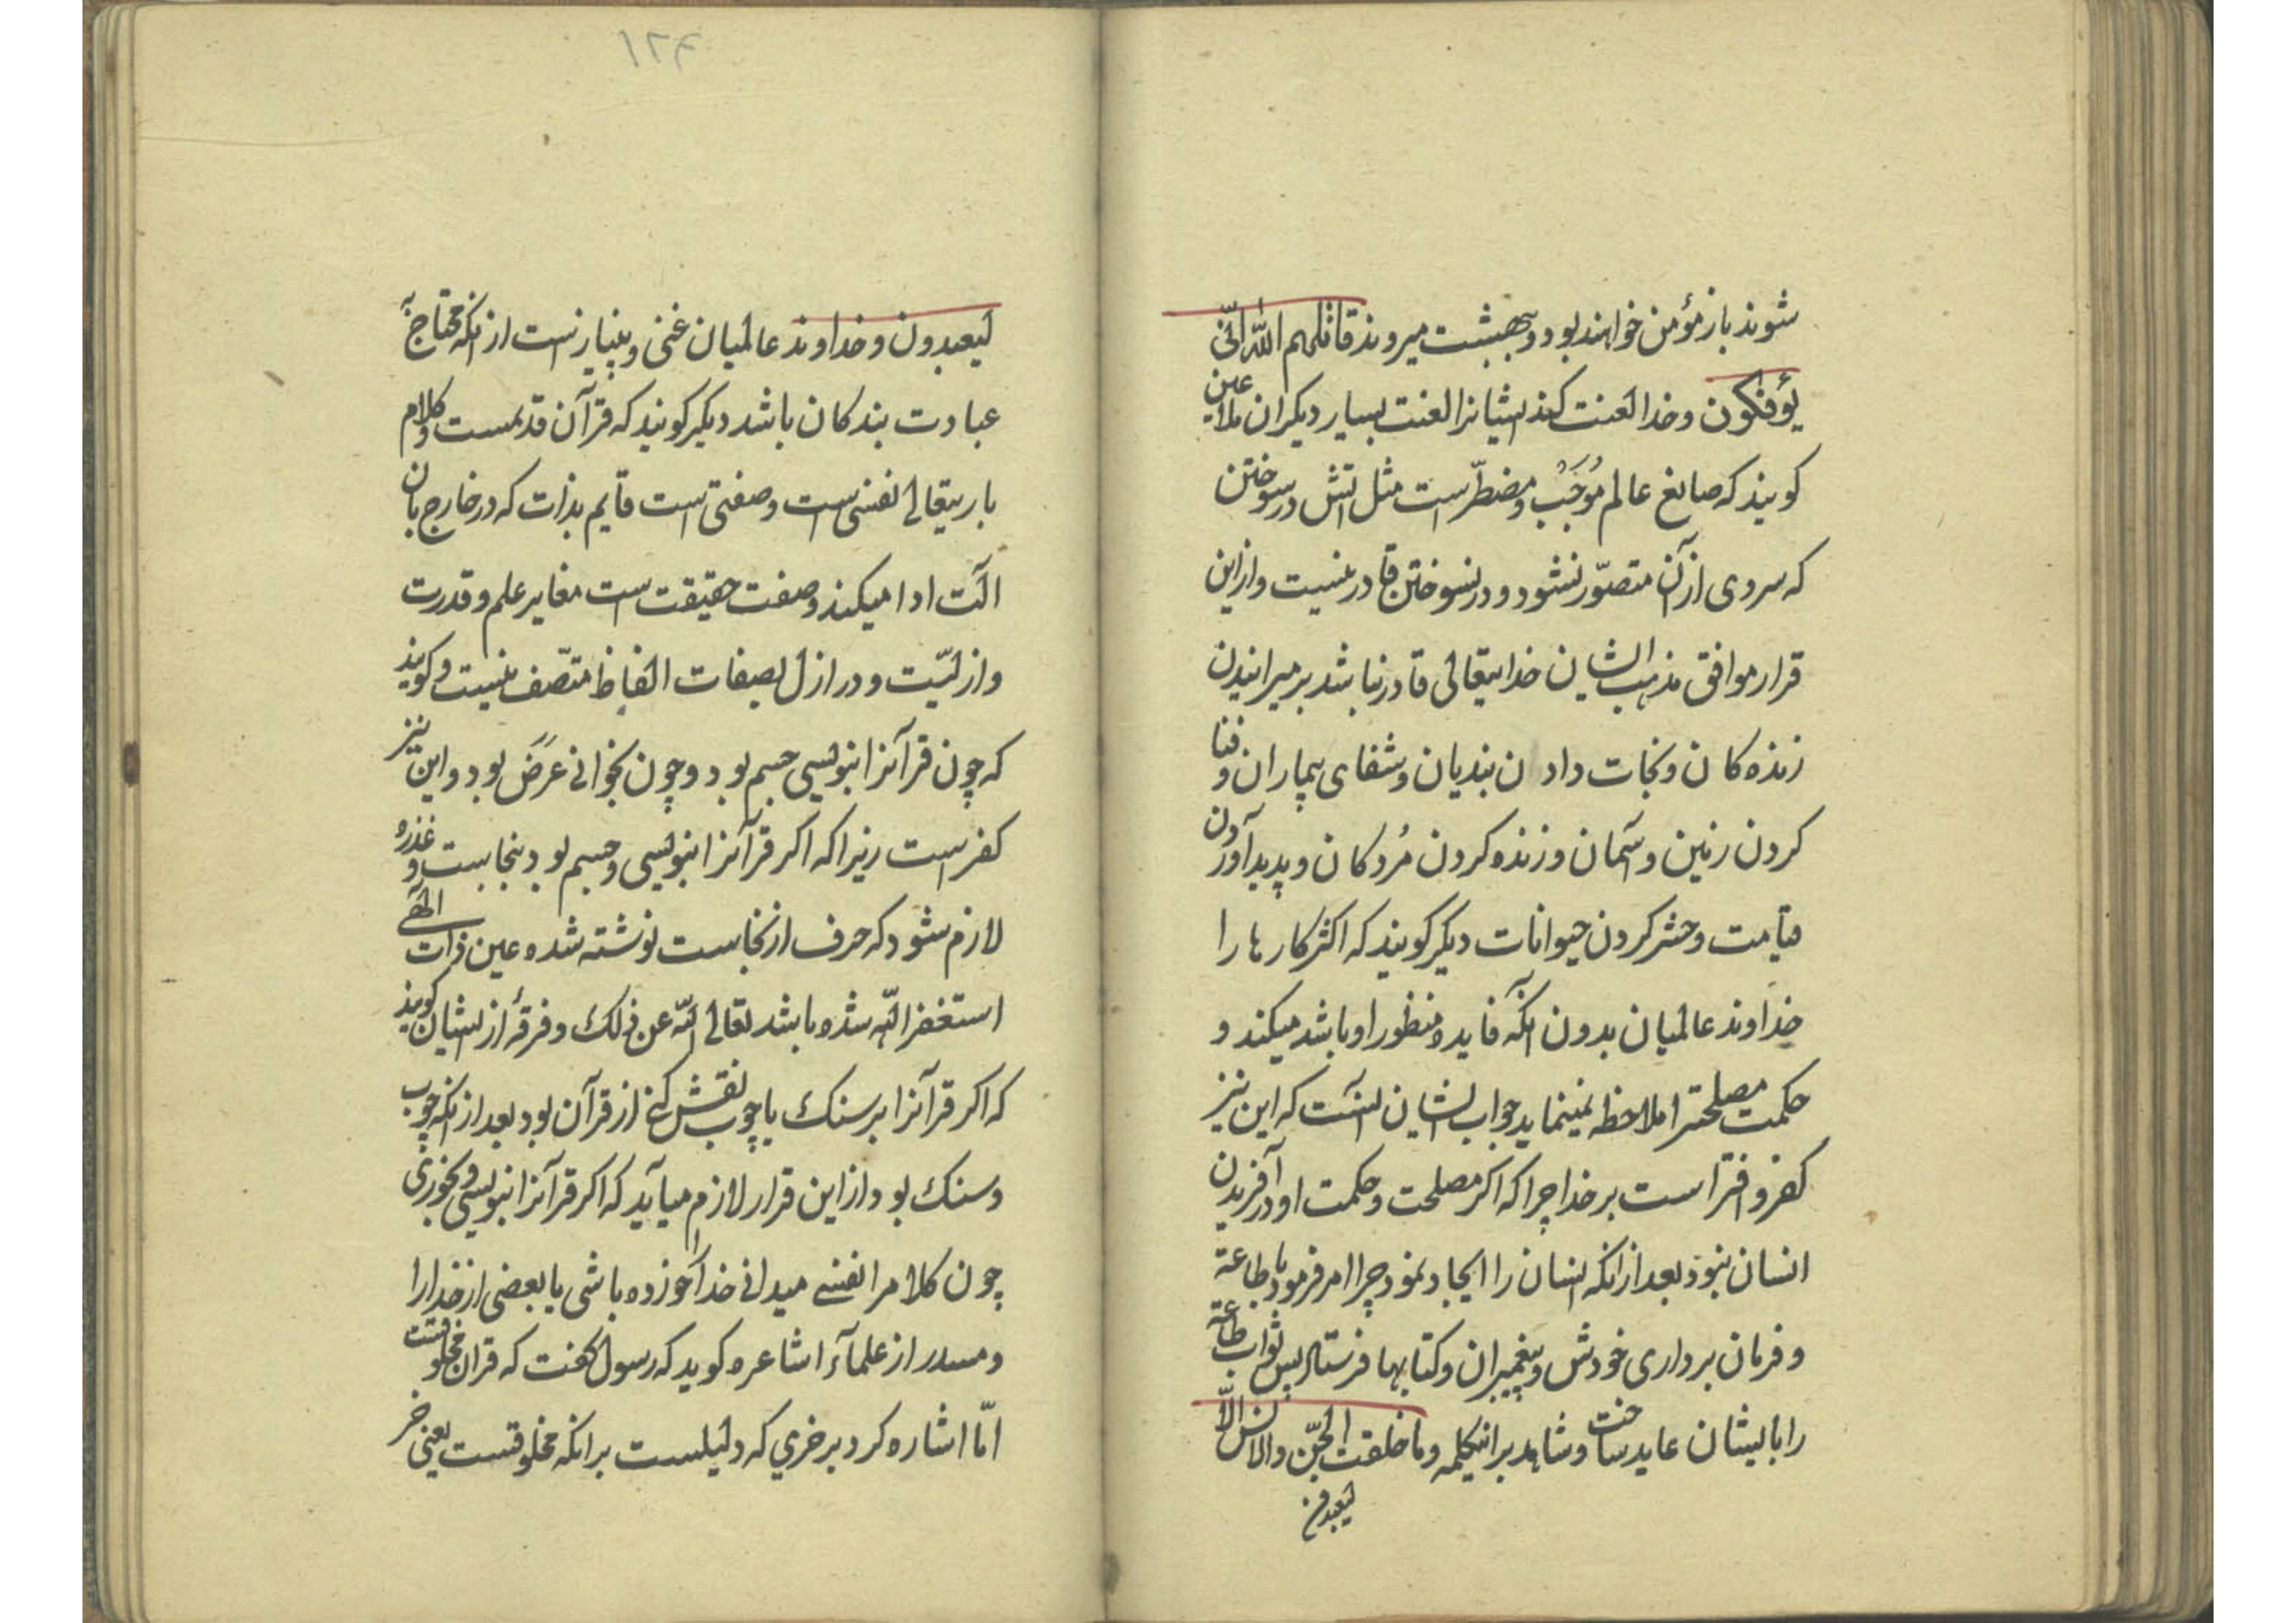 شوند باز مؤمن خواهند بود و ببهشت میروند قاتلهم الله انّی
یؤفکون و خدا لعنت کند ایشانرا لعنت بسیار دیگران ملاعین
کویند که صانع عالم مُوجَبْ و مضطرّ است مثل اتش در سوختن
که سردی از آن متصوّر نشود و در نسوختن قادر نیست و از این
قرار موافق مذهب ایشان خدایتعالی قادر نباشد بر میرانیدن
زنده کان و نجات دادن بندیان و شفای بیماران و فنا
کردن زمین و آسمان و زنده کردن مُردکان و پدید آوردن
قیامت و حشر کردن حیوانات دیکر کویند که اکثر کارها را
خداوند عالمیان بدون انکه فایده و منظور او باشد میکند و
حکمت مصلحترا ملاحظه نمینماید جواب ایشان انست که این نیز
کفر و افترا است بر خدا چرا که اکر مصلحت و حکمت او در آفریدن
انسان نبود بعد از انکه انسان را ایجاد نمود چرا امر فرمود با طاعة
و فرمان برداری خودش و پیغمبران و کتابها فرستاد پس ثواب طاعة
را بایشان عاید ساخت و شاهد بر اینکلمه و ما خلقت الجنّ و الانس الاّ
لیعبدون
۱۲۴
لیعبدون و خداوند عالمیان غنی و بینیاز است از انکه محتاج به
عبادت بندکان باشد دیکر کویند که قرآن قدیمست و کلام
باریتعالی نفسی است و صفتی است قایم بذات که در خارج بان
الت ادا میکند و صفت حقیقت است مغایر علم و قدرت
و ازلیّت و در ازل بصفات الفاظ متّصف نیست و کویند
که چون قرآنرا بنویسی جسم بود و چون بخوانی عَرَض بود و این نیز
کفر است زیرا که اکر قرآنرا بنویسی و جسم بود بنجاست و عذره
لازم شود که حرف از نجاست نوشته شده عین ذات الهی
استغفر الله شده باشد تعالی الله عن ذلک و فرقهٔ از ایشان کویند
که اکر قرآنرا بر سنک یا چوب نقش کنی از قرآن بود بعد از انکه چوب
و سنک بود از این قرار لازم میآید که اکر قرآنرا بنویسی و بخوری
چون کلامرا نفسی میدانی خدا خورده باشی یا بعضی از خدا را
و از علمآء اشاعره کوید که رسول کفت که قران مخلوقست
امّا اشاره کرد بر خری که دلیلست بر انکه مخلوقست یعنی خر